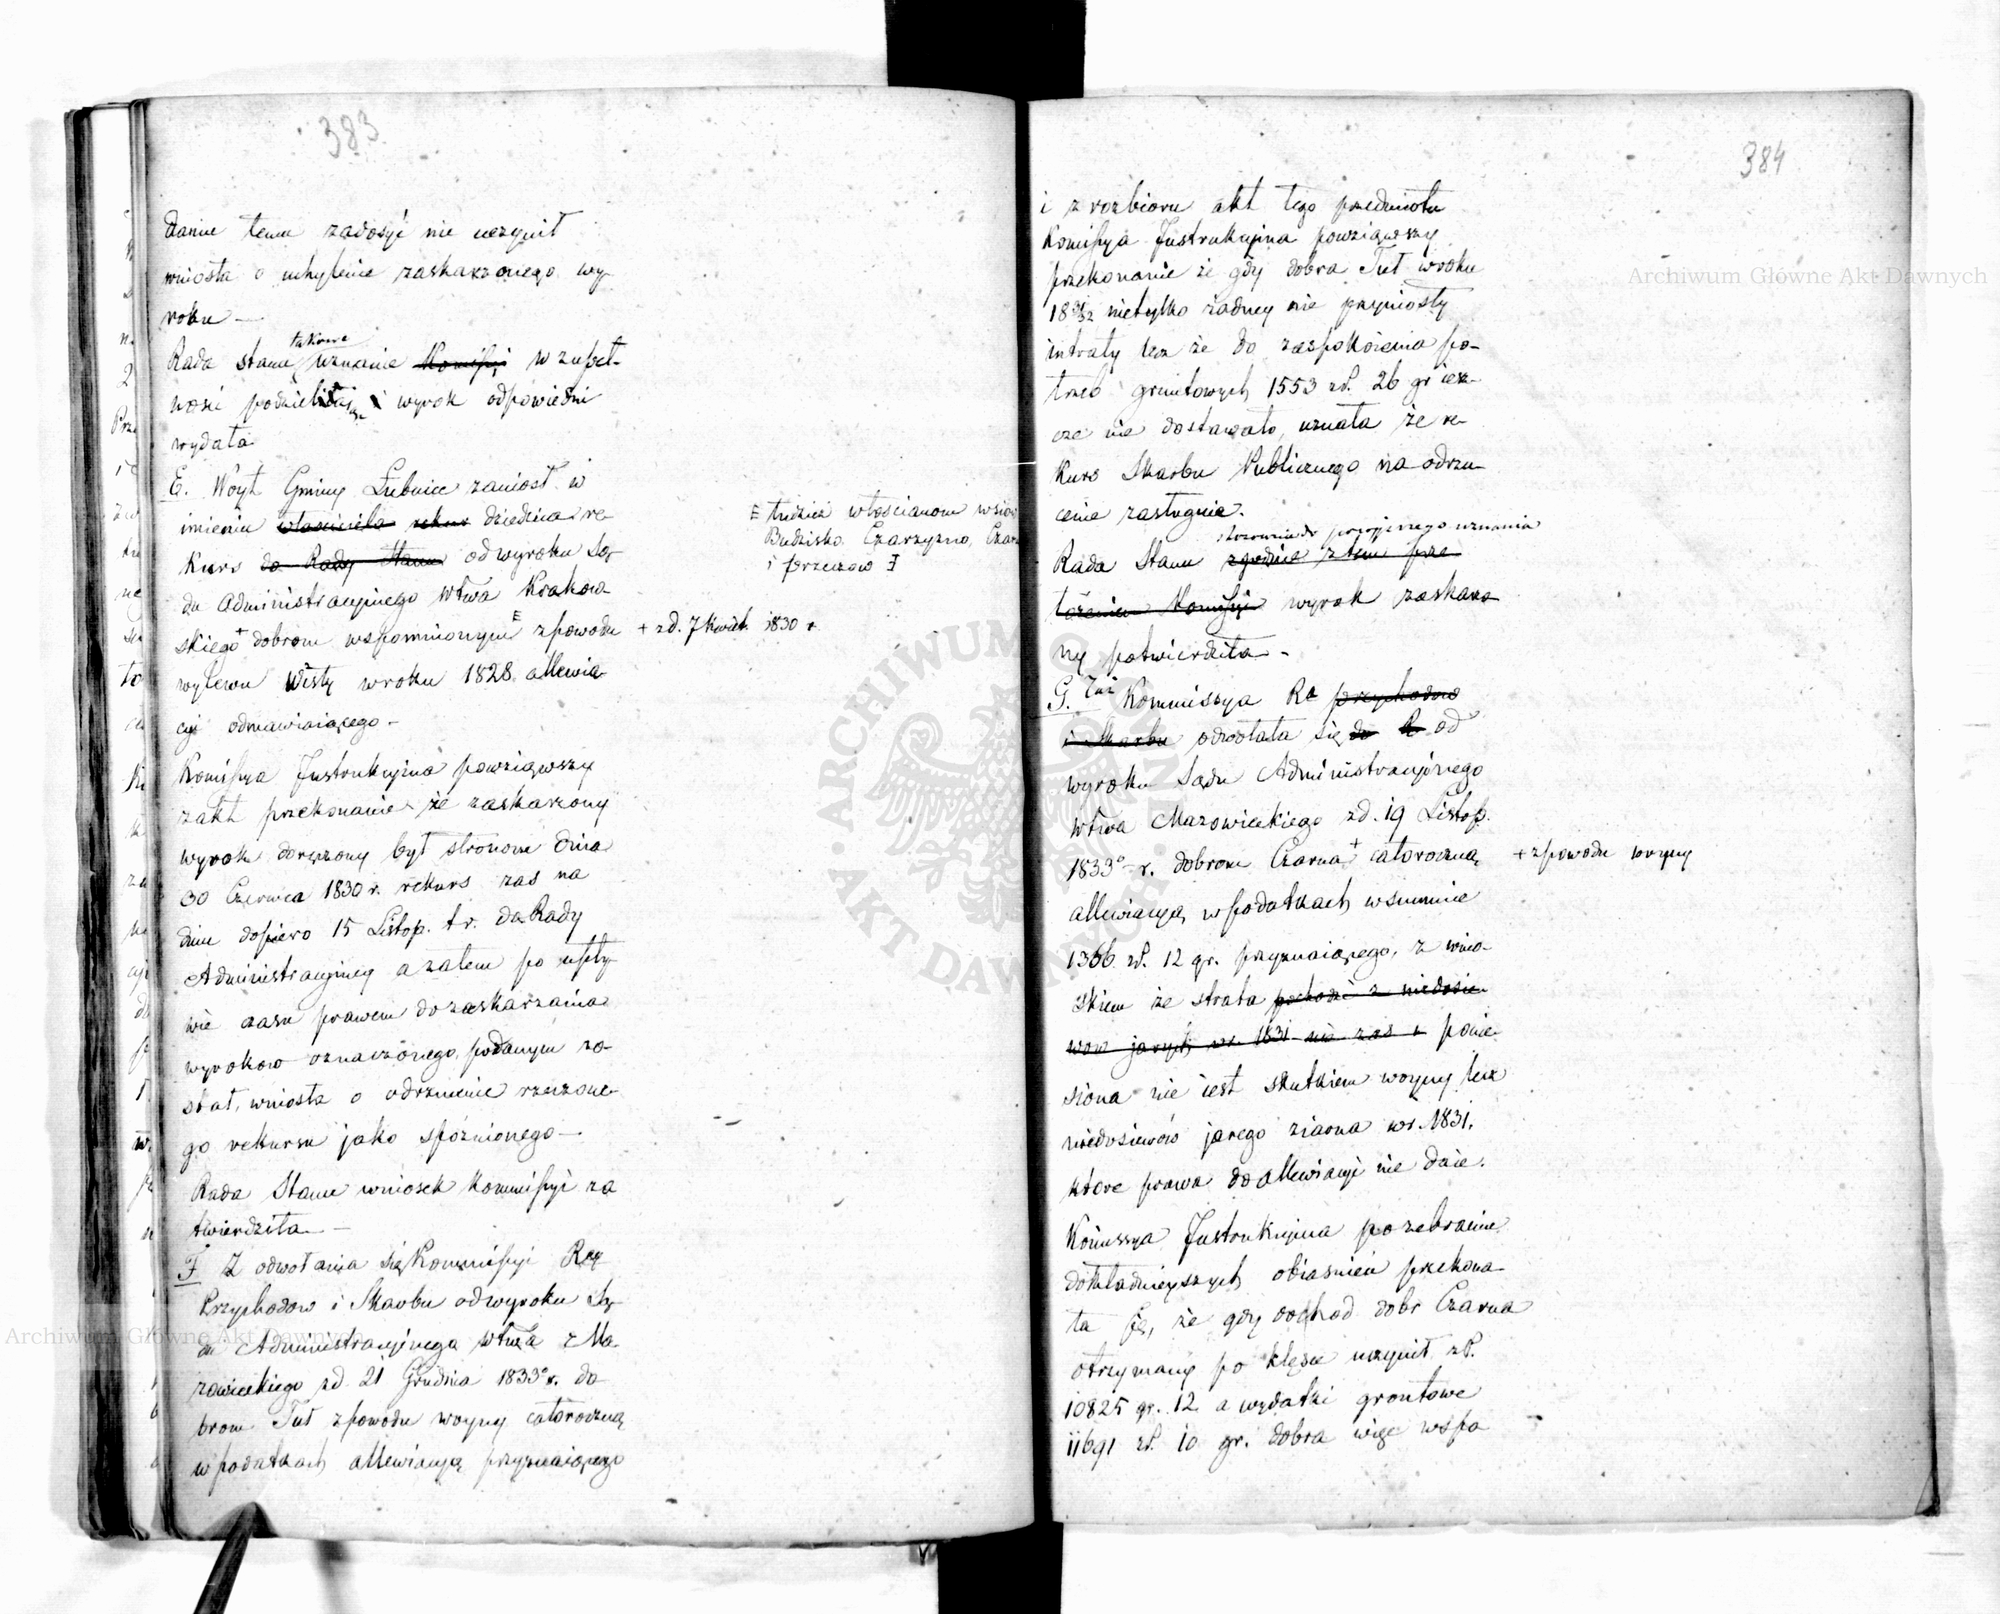 383
daniu temu zadosyć nie uczynił
wniosła o uchylenie zaskarżonego wy-
roku —
Rada Stanu takowe uznanie Komisyi w zupeł-
ności podzielając i wyrok odpowiedni
wydała
E. Woyt Gminy Łubnice zaniosł w
imieniu właściciela rekurs dziedzica re-
kurs do Rady Stanu od wyroku Są-
du Administracyjnego Wtwa Krakow-
skiego + dobrom wspomnionym E z powodu
+ z d. 7 Kwiet. 1830 r
E tudzież włościanom wsiow
Budziska Czarzyzna, Czar
i Przeczow E
wylewu Wisły w roku 1828 allewia-
cyi odmawiaiącego —
Komisya Instrukcyjna powziąwszy
z akt przekonanie że zaskarżony
wyrok doręczony był stronom dnia
30 Czerwca 1830 r. rekurs zas na
dniu dopiero 15 Listop. t. r. do Rady
Administracyjney a zatem po upły-
wie czasu prawem do zaskarżania
wyrokow oznaczonego podanym zo-
stał, wniosła o odrzucenie rzeczone-
go rekursu jako spóźnionego —
Rada Stanu wniosek Kommisyi za
twierdziła —
F Z odwołania się Kommisyi Rząd
Przychodow i Skarbu od wyroku Są-
du Administracyjnego Wtwa Ma-
zowieckiego z d. 21 Grudnia 1833o r. do-
brom Tut z powodu woyny całoroczną
w podatkach allewiacyą przyznaiącego
384
i z rozbioru akt tego przedmiotu
Komisya Instrukcyjna powziąwszy
przekonanie że gdy dobra Tut w roku
1831/32 nietylko żadney nie przyniosły
intraty lecz że do zaspokoienia po-
trzeb gruntowych 1553 zł. 26 gr iesz-
cze nie dostawało, uznała że re-
kurs Skarbu Publicznego na odrzu-
cenie zasługuie.
stosownie do powyższego uznania
Rada Stanu zgodnie z tem prze
łożeniem Komisyi wyrok zaskarżo-
ny potwierdziła —
G. Taż Kommissya Rz przychodow
i Skarbu odwołała się do R od
wyroku Sądu Administracyjnego
Wtwa Mazowieckiego z d. 19 Listop.
1833o r. dobrom Czarna + całoroczną
+ z powodu woyny
allewiacyą w podatkach w summie
1366 zł. 12 gr. przyznaiącego, z wnio-
skiem że strata pochodzi z niedosie-
wow jarych w r. 1831 nie zas z ponie-
siona nie iest skutkiem woyny lecz
niedosiewów jarego ziarna w r. 1831,
które prawa do allewiacyi nie daie.
Komissya Instrukcyjna po zebraniu
dokładnieyszych obiaśnień przekona-
ła się, że gdy dochod dobr Czarna
otrzymany po klęsce uczynił zł.
10825 gr. 12 a wydatki gruntowe
11691 zł. 10 gr. dobra więc wspo